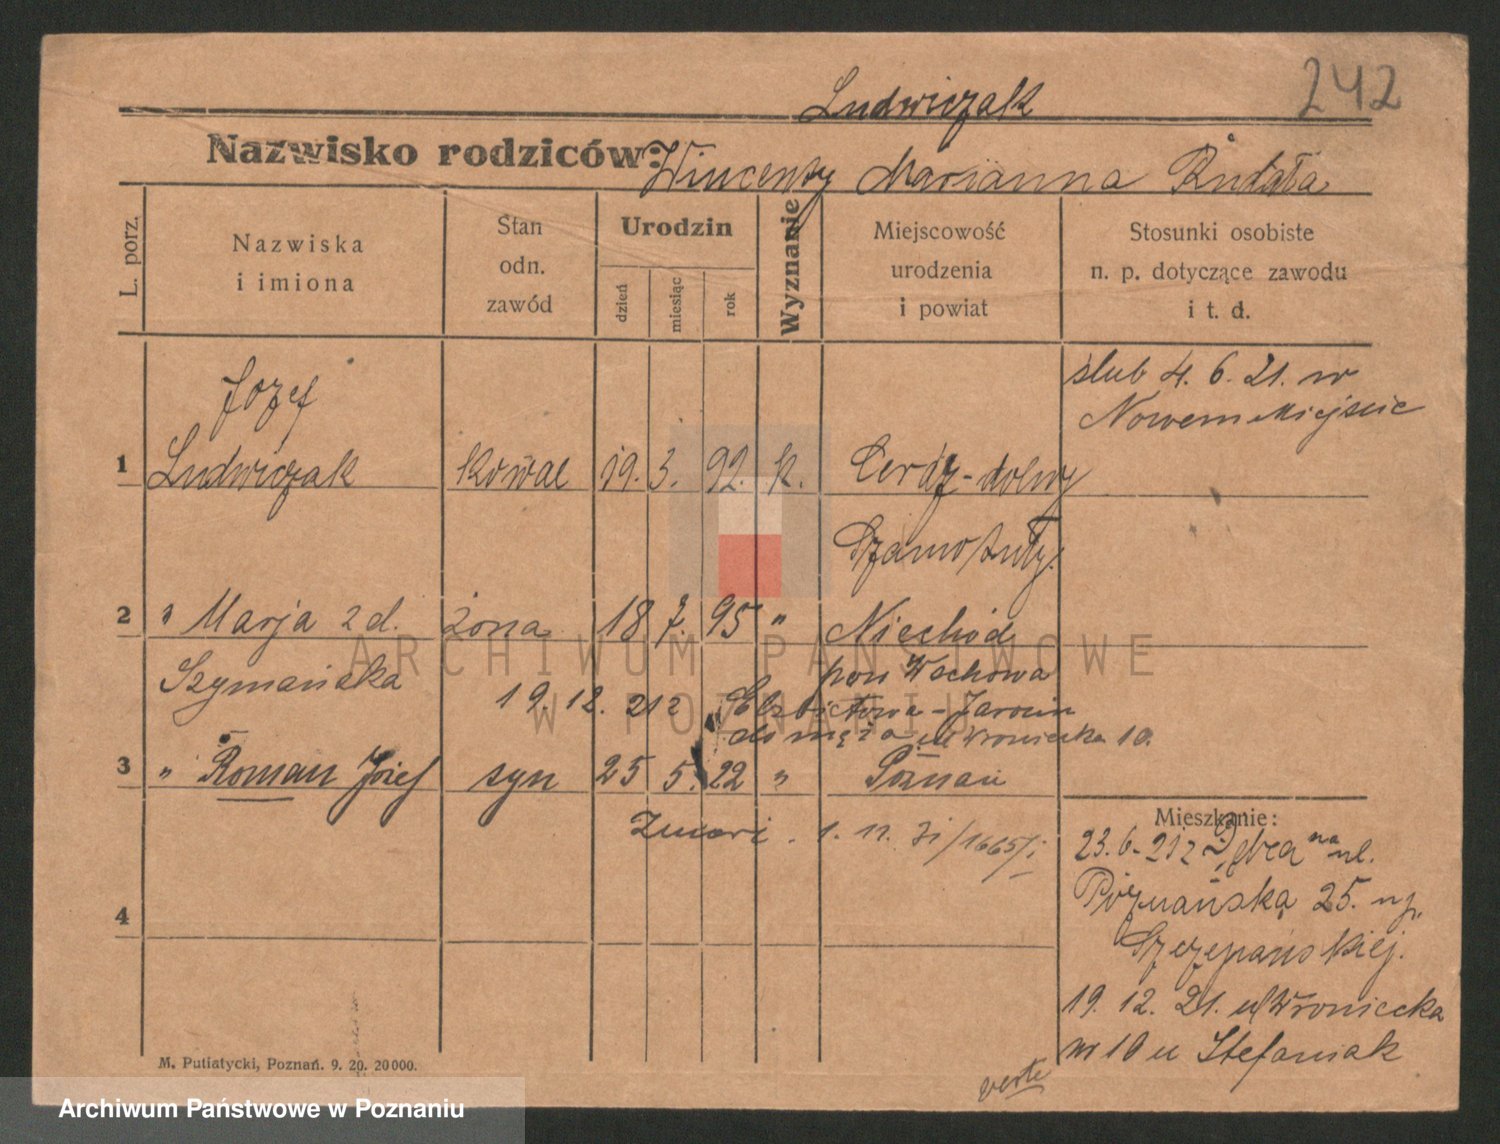 242
Ludwiczak
Nazwisko rodziców: Wincenty Marianna Rudała
L. porz.
Nazwiska
i imiona
Stan
odn.
zawód
Urodzin
dzień
miesiąc
rok
Wyznanie
Miejscowość
urodzenia
i powiat
Stosunki osobiste
n. p. dotyczące zawodu
i t. d.
ślub 4. 6. 21. w
Nowem Miejście
Józef
1 Ludwiczak kowal 19. 3. 92. k. Cerdz-dolny
Szamotuły.
2 " Marja 2 d. żona 18 7. 95 " Niechód
Szymańska pow Wschowa
19. 12. 21 z Elzbietowa - Jarocin
do męża ul Wroniecka 10.
3 " Roman Józef syn 25 5. 22 " Poznań
Zmarł. 1. 11. 31/1665/I
4
Mieszkanie:
23. 6. 21 z Dębca na ul.
Poznańska 25. n p.
Szczepańskiej.
19. 12. 21. ul Wroniecka
nr 10 u Stefaniak
verte
M. Putiatycki, Poznań. 9. 20. 20000.
ARCHIWUM PAŃSTWOWE
W POZNANIU
Archiwum Państwowe w Poznaniu